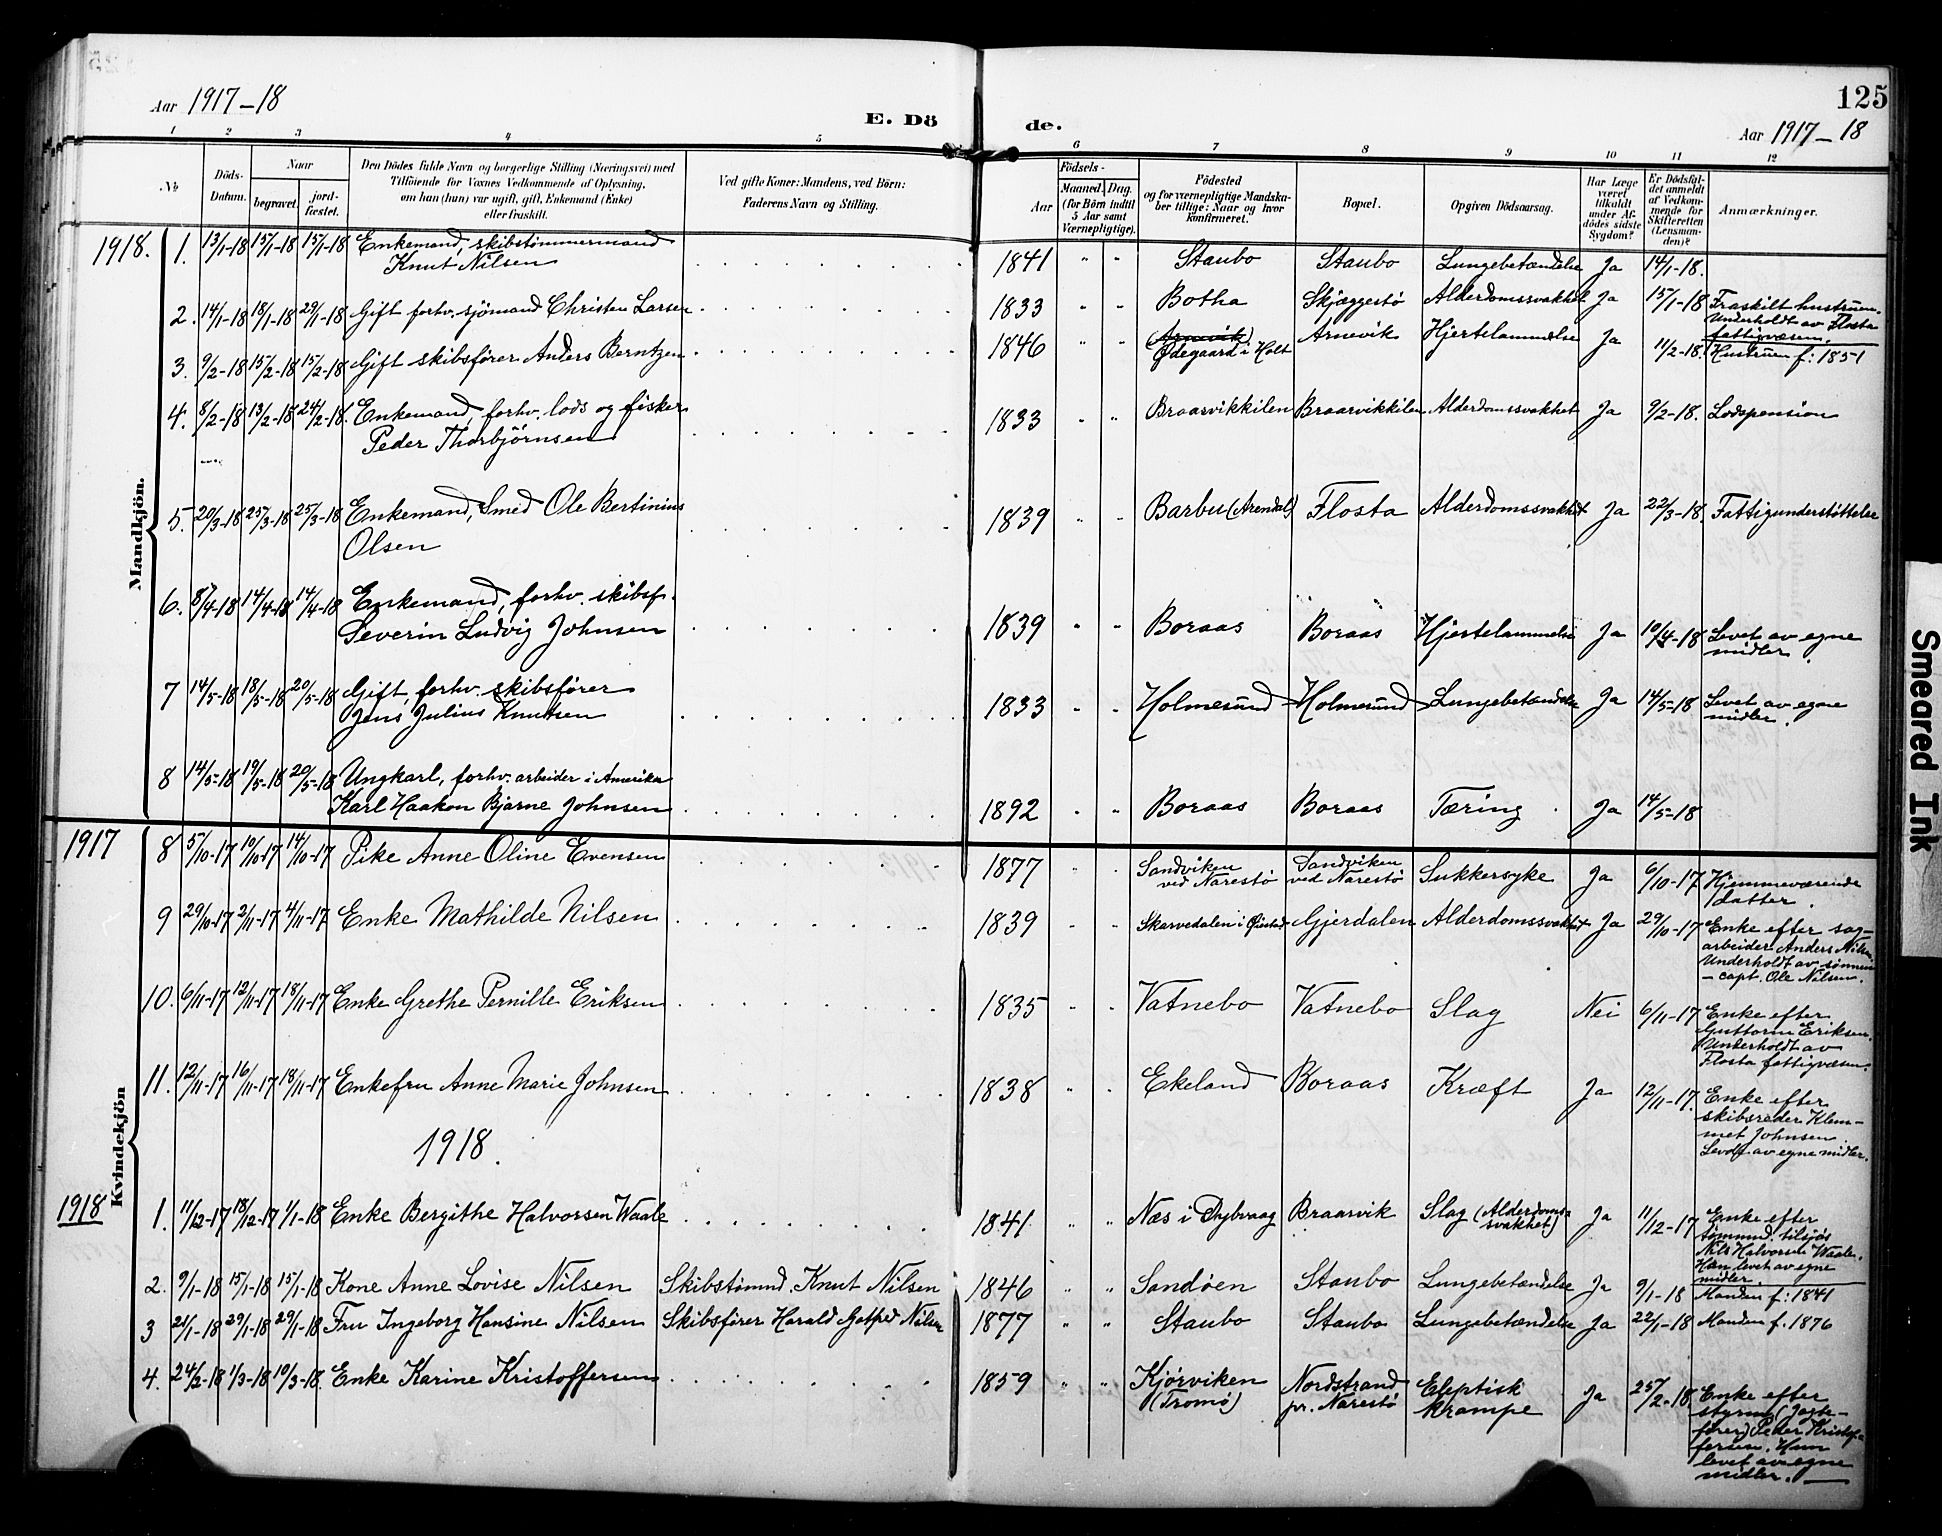 Aar 1917-18
E. Dö
de.
125
Aar 1917-18
1 2 3 4 5 6 7 8 9 10 11 12
No
Döds-Datum.
Naar
begravet.
jord-fæstet.
Den Dödes fulde Navn og borgerlige Stilling (Næringsvei) med
Tilföiende for Voxnes Vedkommende af Oplysning,
om han (hun) var ugift, gift, Enkemand (Enke)
eller fraskilt.
Ved gifte Koner: Mandens, ved Börn:
Faderens Navn og Stilling.
Födsels-
Aar
Maaned. Dag.
(for Börn indtil
5 Aar samt
Værnepligtige).
Födested
og for værnepligtige Mandska-
ber tillige: Naar og hvor
Konfirmeret.
Bopæl.
Opgiven Dödsaarsag.
Har Læge
været
tilkaldt
under Af-
dödes sidste
Sygdom?
Er Dödsfal-
det anmeldt
af Vedkom-
mende for
Skifteretten
(Lensman-
den)?
Anmærkninger.
Mandkjön.
1918. 1. 13/1-18 15/1-18 15/1-18 Enkemand, skibstømmermand
Knut Nilsen 1841 " " Staubo Staubo Lungebetændelse Ja 14/1-18.
2. 14/1-18 18/1-18 29/1-18 Gift forhv. sjömand Christen Larsen 1833 " " Botha Skjæggestö Alderdomssvakhet Ja 15/1-18 Fraskilt hustruen.
Underholdt av Flosta
fattigvæsen.
3. 9/2-18 15/2-18 15/2-18 Gift skibsfører Anders Berntzen 1846 " " (Arnevik) Arnevik Hjertelammelse Ja 11/2-18. Hustruen f: 1851
Ødegaard i Holt
4. 8/2-18 13/2-18 24/2-18. Enkemand, forhv. lods og fisker
Peder Thorbjörnsen 1833 " " Braarvikkilen Braarvikkilen Alderdomssvakhet Ja 9/2-18. Lodspension
5. 20/3-18 25/3-18 25/3-18 Enkemand, Smed Ole Bertinius
Olsen 1839 " " Barbu (Arendal) Flosta Alderdomssvakhet Ja 22/3-18. Fattigunderstøttelse
6. 8/4-18 14/4-18 14/4-18 Enkemand, forhv. skibsf.
Severin Ludvig Johnsen 1839 " " Boraas Boraas Hjertelammelse Ja 10/4-18 Levet av egne
midler.
7 14/5-18 18/5-18 20/5-18 Gift, forhv. skibsfører
Jens Julius Knutsen 1833 " " Holmesund Holmesund Lungebetændelse Ja 14/5-18 Levet av egne
midler.
8 14/5-18 19/5-18 20/5-18 Ungkarl, forhv. arbeider i Amerika
Karl Haakon Bjarne Johnsen 1892 " " Boraas Boraas Tæring Ja 14/5-18
Kvindekjön
1917 8 5/10-17 10/10-17 14/10-17 Pike Anne Oline Evensen 1877 " " Sandviken
ved Narestö Sandviken
ved Narestö Sukkersyke Ja 6/10-17 Hjemmeværende
datter.
9 29/10-17 2/11-17 4/11-17 Enke Mathilde Nilsen 1839 " " Skarvedalen i Øiestad Gjerdalen Alderdomssvakhet Ja 29/10-17 Enke efter sag-
arbeider Anders Nilsen.
Underholdt av sönnen
- capt. Ole Nilsen.
10. 6/11-17 12/11-17 18/11-17 Enke Grethe Pernille Eriksen 1835 " " Vatnebo Vatnebo Slag Nei 6/11-17 Enke efter
Guttorm Eriksen.
Underholdt av
Flosta fattigvæsen.
11. 12/11-17 16/11-17 18/11-17 Enkefru Anne Marie Johnsen 1838 " " Ekeland Boraas Kræft Ja 12/11-17. Enke efter
skibsreder Klem-
met Johnsen.
Levde av egne midler.
1918.
1918 1. 11/12-17 18/12-17 1/1-18 Enke Bergithe Halvorsen Waale 1841 " " Næs i Dybvaag Braarvik Slag (Alderdoms-
svakhet) Ja 11/12-17 Enke efter
tömmmd. tilsjös
Nils Halvorsen Waale.
Han levet av egne
midler.
2. 9/1-18 15/1-18 15/1-18 Kone Anne Lovise Nilsen Skibstömmd. Knut Nilsen 1846 " " Sandöen Staubo Lungebetændelse Ja 9/1-18 Manden f: 1841
3 21/1-18 29/1-18 29/1-18 Fru Ingeborg Hansine Nilsen Skibsfører Harald Gotfred Nilsen 1877 " " Staubo Staubo Lungebetændelse Ja 22/1-18 Manden f. 1876
4. 24/2-18 1/3-18 10/3-18. Enke Karine Kristoffersen 1859 " " Kjörviken
(Tromö) Nordstrand
pr. Narestö Eleptisk
krampe Ja 25/2-18. Enke efter
styrm. (Jagte-
förer) Peder Kristof-
fersen. Hun
levet av egne
midler.
Smeared Ink